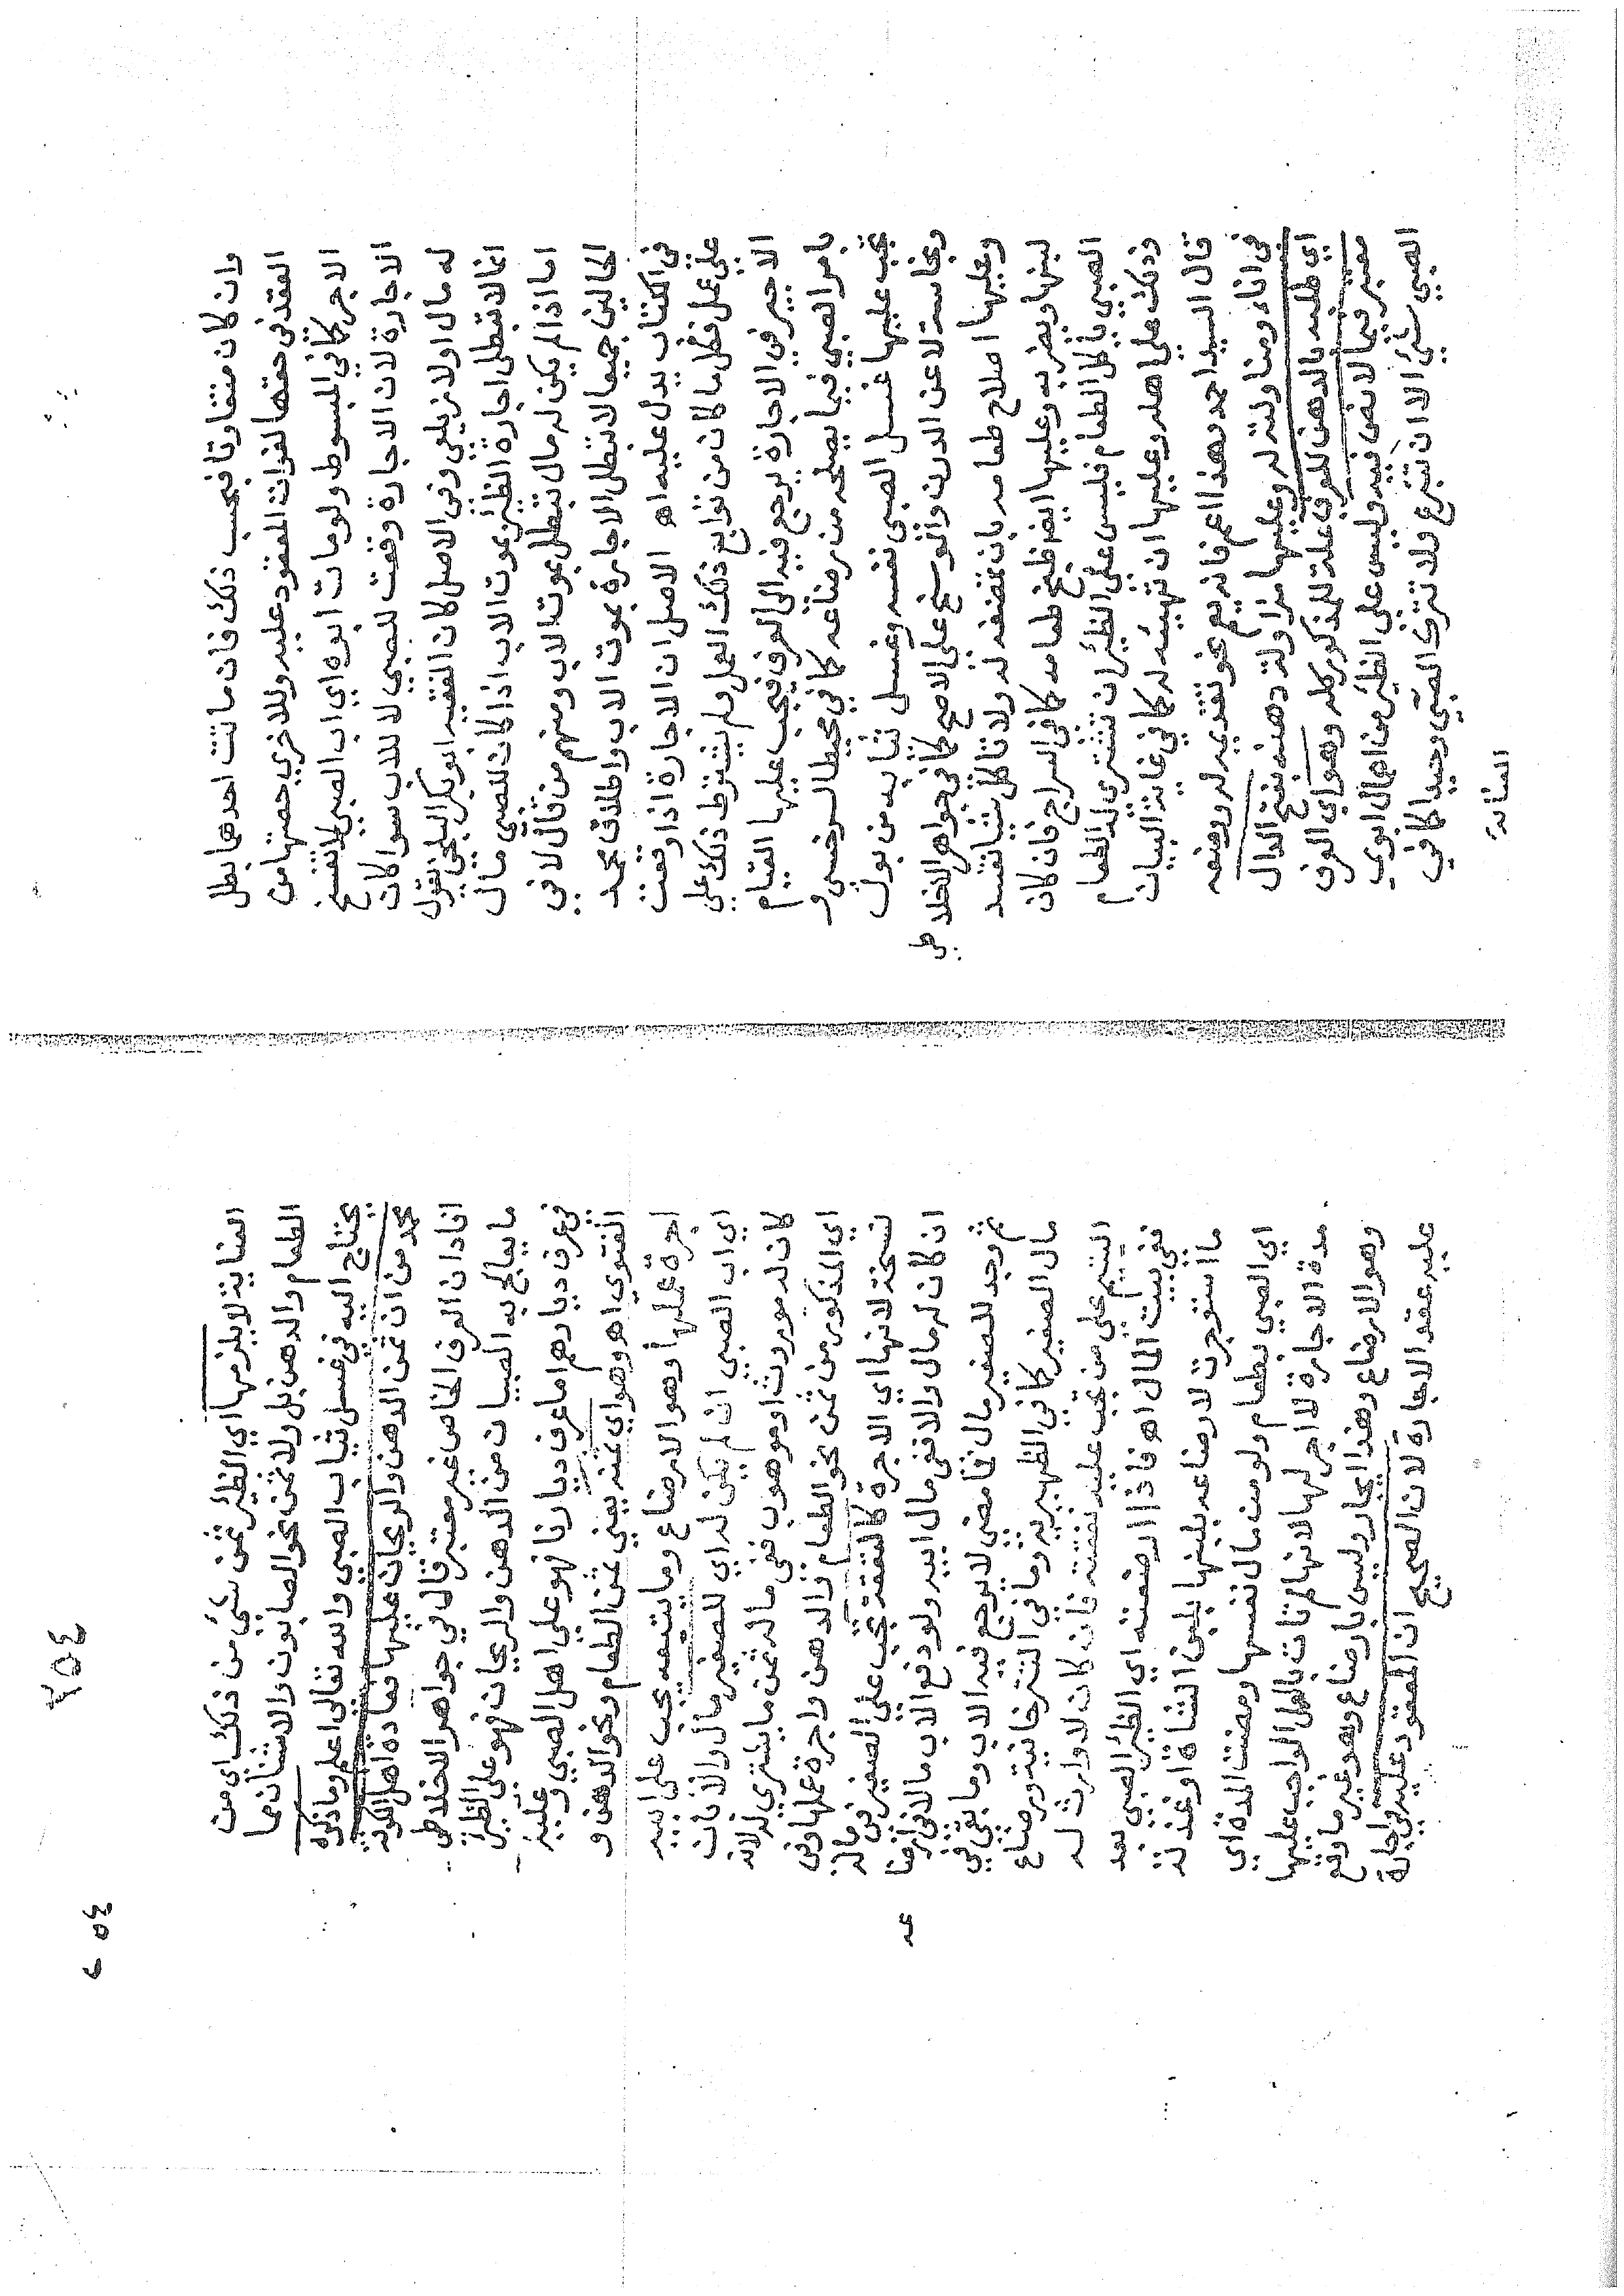 وان كان متفاوتا فبحسب ذلك فان ماتت احدهما بطل
العقد في حقها لفوات المعقود عليه وللاخرى حصتها من
الاجر كما في المبسوط ولو مات ابوه اي اب الصبي لا تنفسخ
الاجارة لان الاجارة وقعت للصبي لا للاب سوا كان
له مال اولا زيلعي وفي الاصل كان الفقيه ابو بكر البلخي يقول
انما لا تبطل اجارة الظئر بموت الاب اذا كان للصبي مال
اما اذا لم يكن له مال تبطل بموت الاب ومنهم من قال لا في
الحالين جميعا لا تبطل الاجارة بموت الاب واطلاق محمد
في الكتاب يدل عليه اهـ الاصل ان الاجارة اذا وقعت
على عمل فكل ما كان من توابع ذلك العمل ولم يشترط ذلك على
الاجير في الاجارة يرجع فيه الى العرف فيجب عليها القيام
بامر الصبي فيما يصلحه من رضاعه كما في محيط السرخسي و
يجب عليها غسل الصبي نفسه وغسل ثيابه من بول
ونجاسته لا عن الدرن والوسخ على الاصح كما في جواهر الاخلاطي
وعليها اصلاح طعامه بان تمضغه له ولا تاكل شيا تفسد
لبنها ويضر به وعليها ايضا طبخ طعامه كما في السراج فان كان
الصبي ياكل الطعام فليس على الظئر ان تشتري له الطعام
وذلك على اهله وعليها ان تهيئه له كما في غاية البيان
قال السيد احمد وهذا اعم فانه يعم نحو تقديمه له ووضعه
في اناء ومناولته له وعليها مزاولة دهنه بفتح الدال
اي طليه بالدهن للعرف علة للمذكور كله وهو اي العرف
معتبر فيما لا نص فيه وليس على الظئر من اعمال ابوي
الصبي شيئ الا ان تتبرع ولا تترك الصبي وحيدا كما في
العناية
٤٥٢
٤٥٢
العناية لا يلزمها اي الظئر ثمن شيئ من ذلك اي من
الطعام والدهن بل ولا ثمن نحو الصابون والاشنان مما
يحتاج اليه في غسل ثياب الصبي والله تعالى اعلم وما ذكره
محمد من ان ثمن الدهن والريحان عليها فعادة اهل الكوفة
افاد ان العرف الخاص غير معتبر قال في جواهر الاخلاطي
ما يعالج به الصبيان من الدهن والريحان فهو على الظئر
في عرف ديارهم اما عرف ديارنا فهو على اهل الصبي وعليه
الفتوى اهـ وهو اي ثمنه يعني ثمن الطعام ونحو الدهن و
اجرة عملها وهو الارضاع وما يتبعه يجب على ابيه
اي اب الصبي ان لم يكن له اي للصغير مال والا فان
كان له موروث او موهوب ففي ماله ثمن ما يشتري له لانه
اي المذكور من ثمن نحو الطعام والدهن واجرة عملها وفي
نسخة لانها اي الاجرة كالنفقة تجب على الصغير في ماله
ان كان له مال والا ففي مال ابيه ولو دفع الاب مالا في رضاعه
ثم وجد للصغير مال فما مضى لا يرجع فيه الاب وما بقي في
مال الصغير كما في الظهيرية وما في التترخانية ورضاع
اليتيم على من تجب عليه نفقته فان كان لا وارث له
ففي بيت المال اهـ فاذا ارضعته اي الظئر الصبي بعد
ما استوجرت لارضاعه بلبنها بلبن الشاة او غذته
اي الصبي بطعام ولو من مال نفسها ومضت المدة اي
مدة الاجارة لا اجر لها لانها لم تات بالعمل الواجب عليها
وهو الارضاع وهذا ايجار وليس بارضاع وهو غير ما وقع
عليه عقد الاجارة لان الصحيح ان المعقود عليه في اجارة